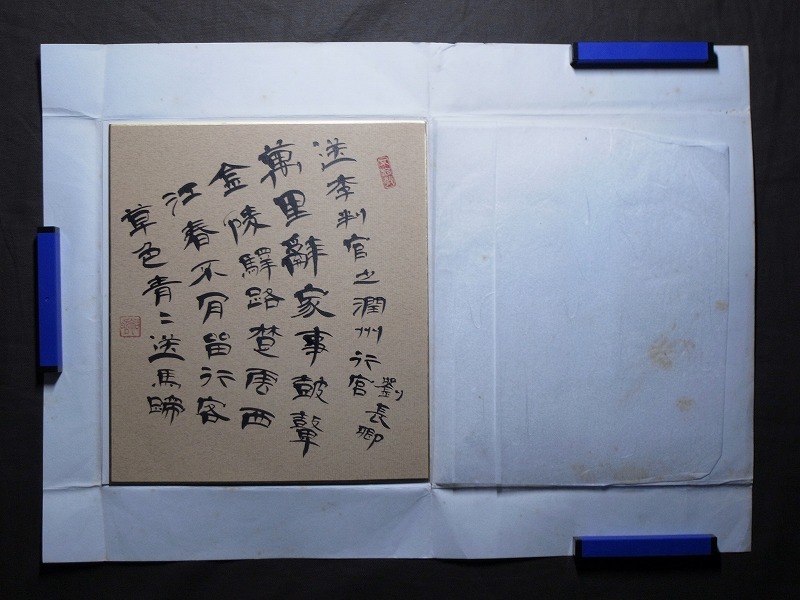 送李判官之潤州行營
劉長卿
萬里辭家事鼓鼙
金陵驛路楚雲西
江春不肯留行客
草色青〻送馬蹄